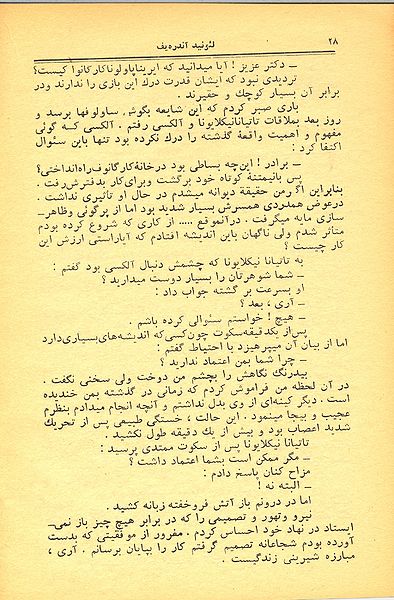 ۲۸
لئونید آندره‌یف
ـ دکتر عزیز ! آیا میدانید که ایریناپاولوناکارگانوا کیست؟
تردیدی نبود که ایشان قدرت درك این بازی را ندارند ودر
برابر آن بسیار کوچك و حقیرند .
باری صبر کردم که این شایعه بگوش ساولوفها برسد و
روز بعد بملاقات تاتیانانیکلایونا و آلکسی رفتم . آلکسی که گوئی
مفهوم و اهمیت واقعهٔ گذشته را درك نکرده بود تنها باین سئوال
اکتفا کرد :
ـ برادر ! این‌چه بساطی بود درخانهٔ کارگانوف‌راه‌انداختی؟
پس بانیمتنهٔ کوتاه خود برگشت وبرای‌کار بدفترش‌رفت .
بنابراین اگرمن حقیقة دیوانه میشدم در حال او تأثیری نداشت .
درعوض همدردی همسرش بسیار شدید بود اما از پرگوئی وظاهرـ
سازی مایه میگرفت . درآنموقع ..... از کاری که شروع کرده بودم
متأثر شدم ولی ناگهان باین اندیشه افتادم که آیاراستی ارزش این
کار چیست ؟
به تاتیانا نیکلایونا که چشمش دنبال آلکسی بود گفتم :
ـ شما شوهرتان را بسیار دوست میدارید ؟
او بسرعت بر گشته جواب داد :
ـ آری ، بعد ؟
ـ هیچ ! خواستم سئوالی کرده باشم .
پس‌از یکدقیقه‌سکوت چون‌کسی‌که اندیشه‌های‌بسیاری‌دارد
اما از بیان آن میپرهیزد با احتیاط گفتم :
ـ چرا شما بمن اعتماد ندارید ؟
بیدرنگ نگاهش را بچشم من دوخت ولی سخنی نگفت .
در آن لحظه من فراموش کردم که زمانی در گذشته بمن خندیده
است . دیگر کینه‌ای از وی بدل نداشتم و آنچه انجام میدادم بنظرم
عجیب و بیجا مینمود . این حالت ، خستگی طبیعی پس از تحریك
شدید اعصاب بود و بیش از یك دقیقه طول نکشید .
تاتیانا نیکلایونا پس از سکوت ممتدی پرسید :
ـ مگر ممکن است بشما اعتماد داشت ؟
مزاح کنان پاسخ دادم :
ـ البته نه !
اما در درونم باز آتش فروخفته زبانه کشید .
نیرو وتهور و تصمیمی را که در برابر هیچ چیز باز نمی‌ـ
ایستاد در نهاد خود احساس کردم . مغرور از موفقیتی که بدست
آورده بودم شجاعانه تصمیم گرفتم کار را بپایان برسانم . آری ،
مبارزه شیرینی زندگیست .